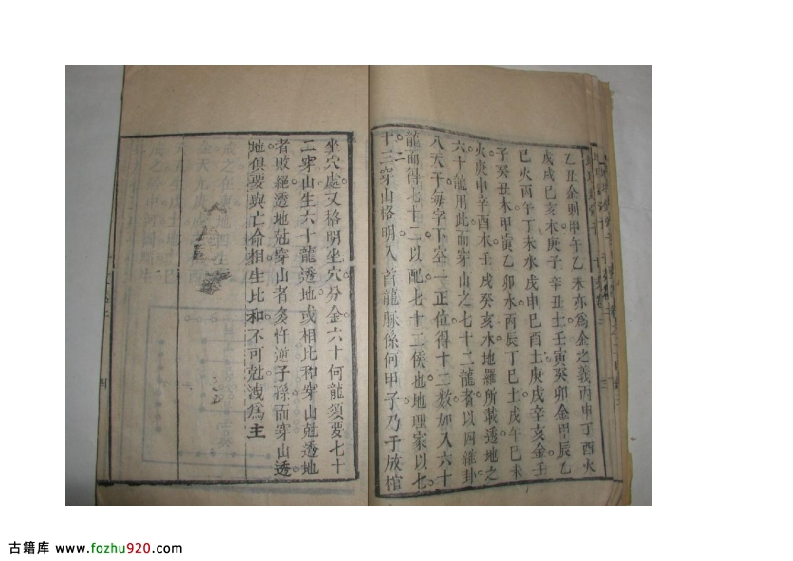 乙丑金則甲午乙未亦爲金之義丙申丁酉火
戊戌己亥木庚子辛丑土壬寅癸卯金甲辰乙
巳火丙丁未水戊申己酉土庚戌辛亥金壬
子癸丑木甲寅乙卯水丙辰丁巳土戊午己未
火庚申辛酉木壬戌癸亥水地羅所載透地之
六十龍用此而穿山之七十二龍者以四維卦
八天干每字下空一正位得十二數如入六十
龍而得七十二以配七十二候也地理家以七
十二穿山格明入首龍脉係何甲子乃于放棺
坐穴處又格明坐穴分金六十何龍須要七十
二穿山生六十龍透地或相比和穿山尅透地
者敗絕透地尅穿山者多忤逆子孫而穿山透
地俱要與亡命相生比和不可尅洩爲主
四
古籍库 www.fozhu920.com